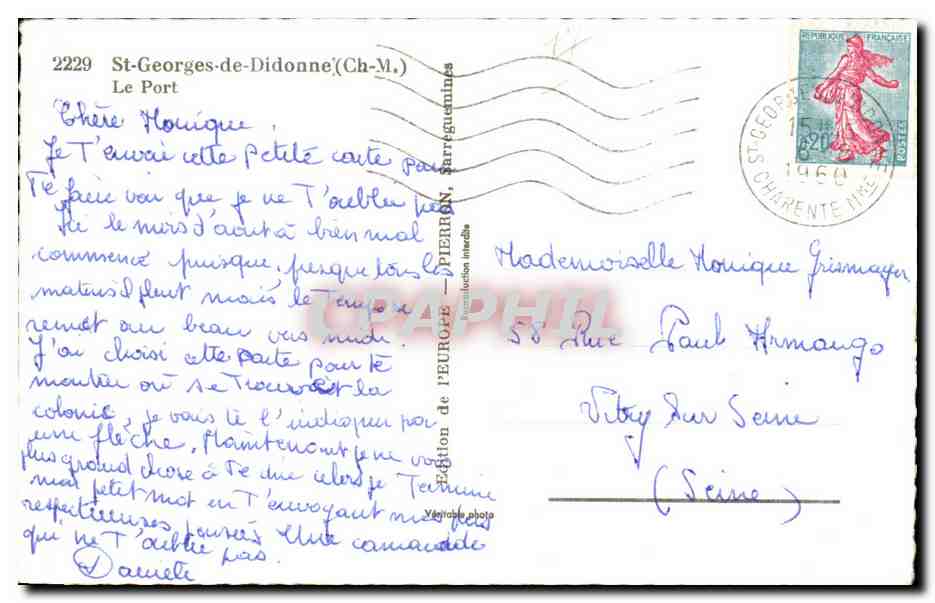 2229 St-Georges-de-Didonne (Ch-M.)
Le Port
Chère Monique.
Je T'envoi cette petite carte pour
Te faire voir que je ne T'oublie pas
Ici le mois d'aout à bien mal
commencé puisque, presque tous les
matins il pleut mais le Temps se
remet au beau vers midi.
J'ai choisi cette carte pour te
montrer où se Trouve la
colonie, je vais te l'indiquer par
une flèche. Maintenant je ne vois
plus grand chose à Te dire alors je Termine
mon petit mot en T'envoyant mes plus
respectueuses pensées Une camarade
qui ne T'oublie pas.
Danièle
Edition de l'EUROPE — PIERRON, Sarreguemines
Reproduction interdite
Véritable photo
CPAPHIL
REPUBLIQUE FRANÇAISE
POSTES
0,20
ST-GEORGES
15
1960
CHARENTE MME
Mademoiselle Monique Grismayer
58 Rue Paul Armango
Vitry Sur Seine
(Seine)